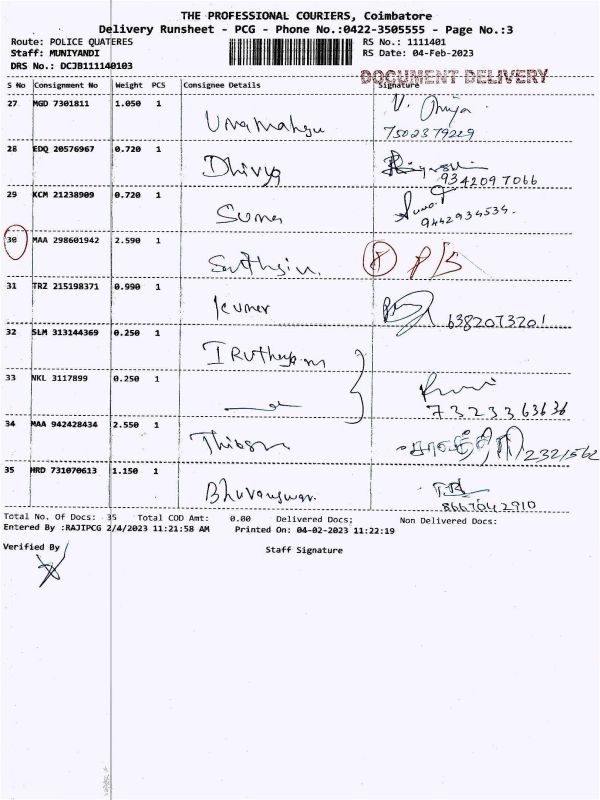 THE PROFESSIONAL COURIERS, Coimbatore
Delivery Runsheet - PCG - Phone No.:0422-3505555 - Page No.:3
Route: POLICE QUATERES RS No.: 1111401
Staff: MUNIYANDI RS Date: 04-Feb-2023
DRS No.: DCJB111140103
DOCUMENT DELIVERY
S No Consignment No Weight PCS Consignee Details Signature
27 MGD 7301811 1.050 1 Umamahesu
7502379229
28 EDQ 20576967 0.720 1 Dhivya
9342097066
29 KCM 21238909 0.720 1 Suma
9442934534.
30 MAA 298601942 2.590 1 P/S
31 TRZ 215198371 0.990 1 Kumar
6382073201
32 SLM 313144369 0.250 1
33 NKL 3117899 0.250 1
7323363636
34 MAA 942428434 2.550 1
35 HRD 731070613 1.150 1
8667042910
Total No. Of Docs: 35 Total COD Amt: 0.00 Delivered Docs: Non Delivered Docs:
Entered By :RAJIPCG 2/4/2023 11:21:58 AM Printed On: 04-02-2023 11:22:19
Verified By Staff Signature